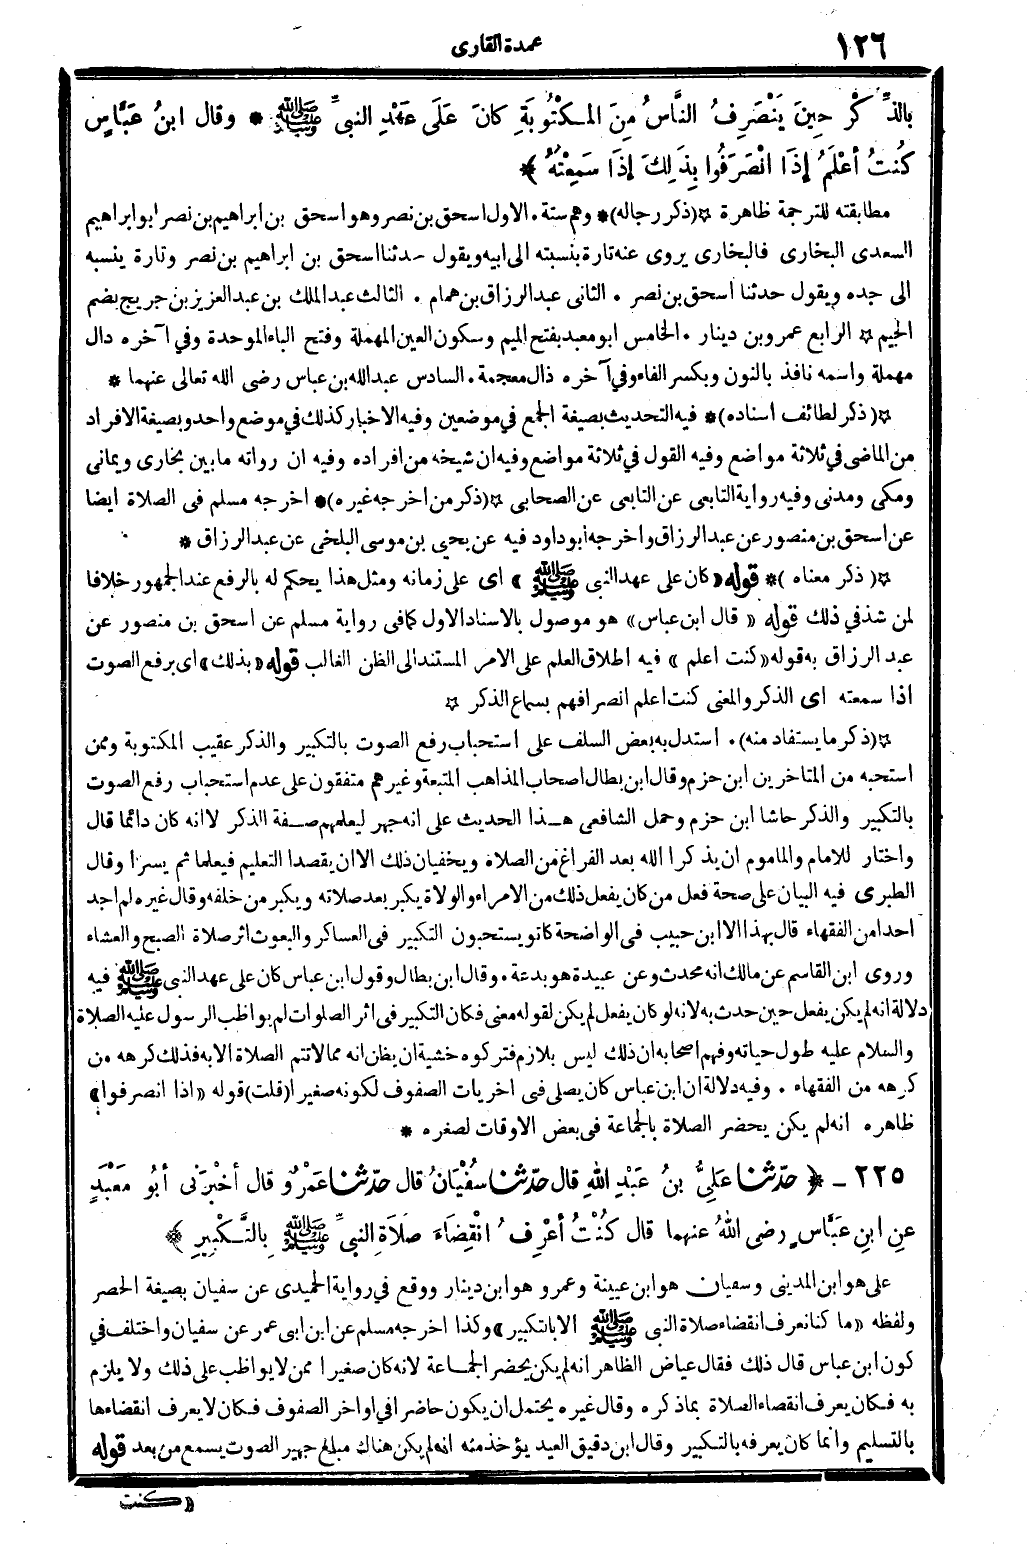 ١٢٦
عمدة القارى
بالذِّكْرِ حِينَ يَنْصَرِفُ النَّاسُ مِنَ المَكْتُوبَةِ كانَ عَلَى عَهْدِ النبىِّ ﷺ * وقال ابنُ عَبَّاسٍ
كُنتُ أعْلَمُ إذَا انْصَرَفُوا بِذَلِكَ إذَا سَمِعْتُهُ ﴾ *
مطابقته للترجمة ظاهرة ☆(ذكر رجاله)* وهم ستة . الاول اسحق بن نصر وهو اسحق بن ابراهيم بن نصر ابو ابراهيم
السعدى البخارى فالبخارى يروى عنه تارة بنسبته الى ابيه ويقول حدثنا اسحق بن ابراهيم بن نصر وتارة ينسبه
الى جده ويقول حدثنا اسحق بن نصر . الثانى عبد الرزاق بن همام . الثالث عبد الملك بن عبد العزيز بن جريج بضم
الجيم ☆ الرابع عمرو بن دينار . الخامس ابو معبد بفتح الميم وسكون العين المهملة وفتح الباء الموحدة وفي آخره دال
مهملة واسمه نافذ بالنون وبكسر الفاء وفي آخره ذال معجمة . السادس عبد الله بن عباس رضى الله تعالى عنهما *
☆( ذكر لطائف اسناده)* فيه التحديث بصيغة الجمع في موضعين وفيه الاخبار كذلك في موضع واحد وبصيغة الافراد
من الماضى في ثلاثة مواضع وفيه القول في ثلاثة مواضع وفيه ان شيخه من افراده وفيه ان رواته ما بين بخارى ويمانى
ومكى ومدنى وفيه رواية التابعى عن التابعى عن الصحابى ☆(ذكر من اخرجه غيره)* اخرجه مسلم فى الصلاة ايضا
عن اسحق بن منصور عن عبد الرزاق واخرجه أبو داود فيه عن يحيى بن موسى البلخى عن عبد الرزاق *
☆( ذكر معناه )* قوله «كان على عهد النبى ﷺ » اى على زمانه ومثل هذا يحكم له بالرفع عند الجمهور خلافا
لمن شذ في ذلك قوله « قال ابن عباس» هو موصول بالاسناد الاول كما فى رواية مسلم عن اسحق بن منصور عن
عبد الرزاق به قوله «كنت اعلم » فيه اطلاق العلم على الامر المستند الى الظن الغالب قوله «بذلك» اى برفع الصوت
اذا سمعته اى الذكر والمعنى كنت اعلم انصرافهم بسماع الذكر ☆
☆(ذكر ما يستفاد منه). استدل به بعض السلف على استحباب رفع الصوت بالتكبير والذكر عقيب المكتوبة وممن
استحبه من المتاخرين ابن حزم وقال ابن بطال اصحاب المذاهب المتبعة وغيرهم متفقون على عدم استحباب رفع الصوت
بالتكبير والذكر حاشا ابن حزم وحمل الشافعى هذا الحديث على انه جهر ليعلمهم صفة الذكر لا انه كان دائما قال
واختار للامام والماموم ان يذكرا الله بعد الفراغ من الصلاة ويخفيان ذلك الا ان يقصدا التعليم فيعلما ثم يسرا وقال
الطبرى فيه البيان على صحة فعل من كان يفعل ذلك من الامراء والولاة يكبر بعد صلاته ويكبر من خلفه وقال غيره لم اجد
احدا من الفقهاء قال بهذا الا ابن حبيب فى الواضحة كانو يستحبون التكبير فى العساكر والبعوث اثر صلاة الصبح والعشاء
وروى ابن القاسم عن مالك انه محدث وعن عبيدة هو بدعة . وقال ابن بطال وقول ابن عباس كان على عهد النبى ﷺ فيه
دلالة انه لم يكن يفعل حين حدث به لانه لو كان يفعل لم يكن لقوله معنى فكان التكبير فى اثر الصلوات لم يواظب الرسول عليه الصلاة
والسلام عليه طول حياته وفهم اصحابه ان ذلك ليس بلازم فتركوه خشية ان يظن انه مما لا تتم الصلاة الا به فذلك كرهه من
كرهه من الفقهاء . وفيه دلالة ان ابن عباس كان يصلى فى اخريات الصفوف لكونه صغيرا (قلت) قوله «اذا انصرفوا»
ظاهره انه لم يكن يحضر الصلاة بالجماعة فى بعض الاوقات لصغره *
٢٢٥ - ﴿ حدّثنا عَلِىُّ بنُ عَبْدِ اللهِ قال حدّثنا سُفْيَانُ قال حدّثنا عَمْرٌو قال أخْبَرَنى أبُو مَعْبَدٍ
عنِ ابنِ عَبَّاسٍ رضى اللهُ عنهما قال كُنْتُ أعْرِفُ انْقِضَاءَ صَلَاةِ النبىِّ ﷺ بِالتَّكْبِيرِ ﴾
على هو ابن المدينى وسفيان هو ابن عيينة وعمرو هو ابن دينار ووقع في رواية الحميدى عن سفيان بصيغة الحصر
ولفظه «ما كنا نعرف انقضاء صلاة النبى ﷺ الا بالتكبير» وكذا اخرجه مسلم عن ابن ابى عمر عن سفيان واختلف في
كون ابن عباس قال ذلك فقال عياض الظاهر انه لم يكن يحضر الجماعة لانه كان صغيرا ممن لا يواظب على ذلك ولا يلزم
به فكان يعرف انقضاء الصلاة بما ذكره وقال غيره يحتمل ان يكون حاضرا في اواخر الصفوف فكان لا يعرف انقضاءها
بالتسليم وانما كان يعرفه بالتكبير وقال ابن دقيق العيد يؤخذ منه انه لم يكن هناك مبلغ جهير الصوت يسمع من بعد قوله
«كنت